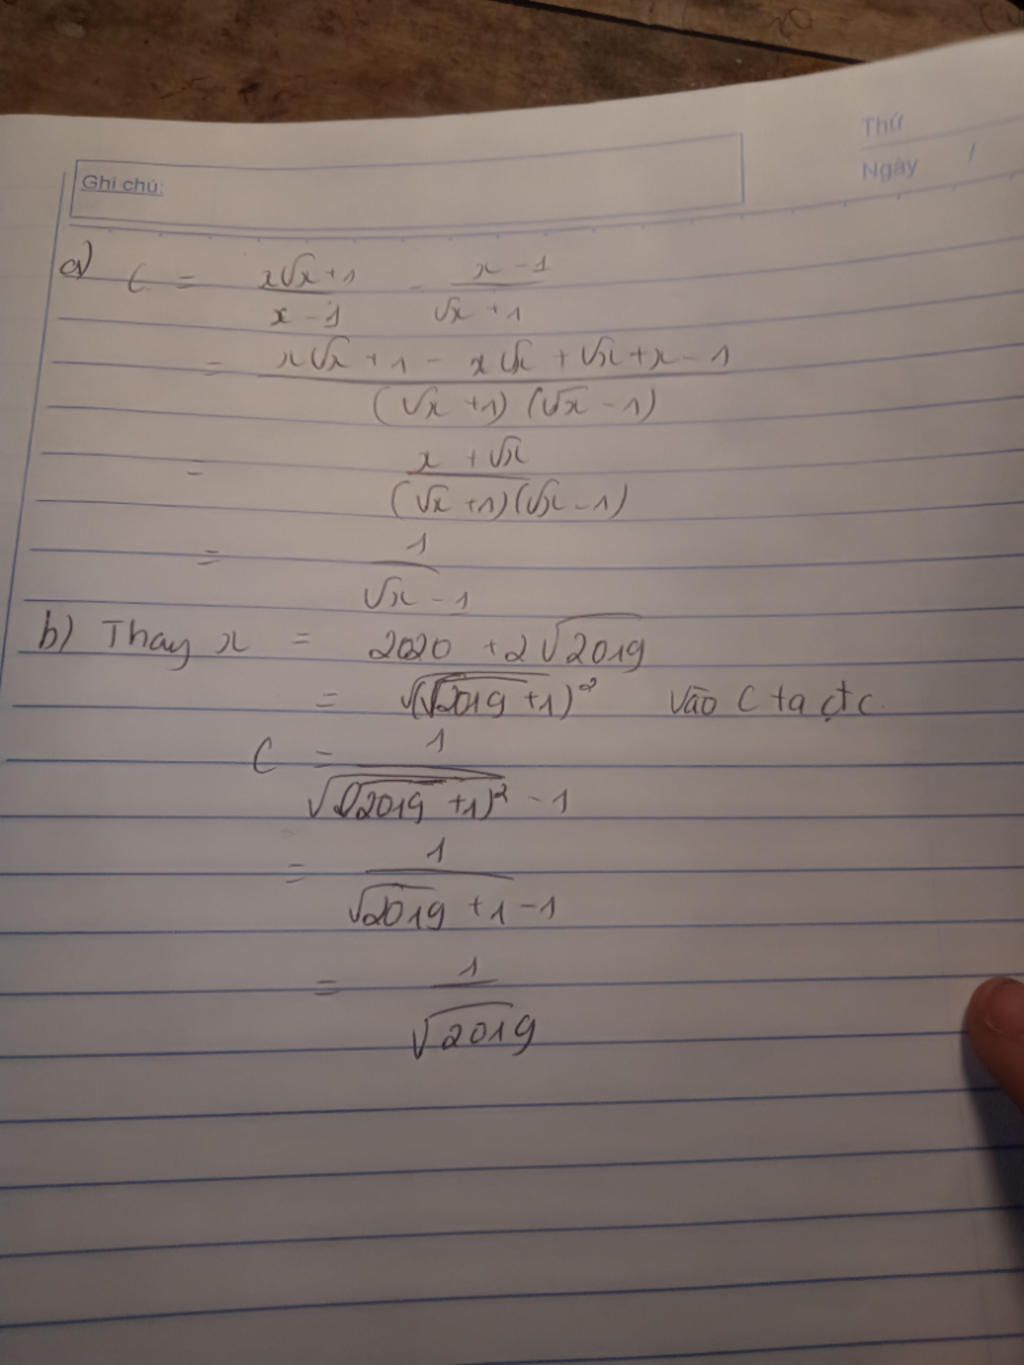 Thứ
Ngày /
Ghi chú:
a) C = x√x + 1 / x - 1 - x - 1 / √x + 1
= x√x + 1 - x√x + √x + x - 1 / (√x + 1)(√x - 1)
= x + √x / (√x + 1)(√x - 1)
= 1 / √x - 1
b) Thay x = 2020 + 2√2019
= √(√2019 + 1)² vào C ta đc
C = 1 / √(√2019 + 1)² - 1
= 1 / √2019 + 1 - 1
= 1 / √2019